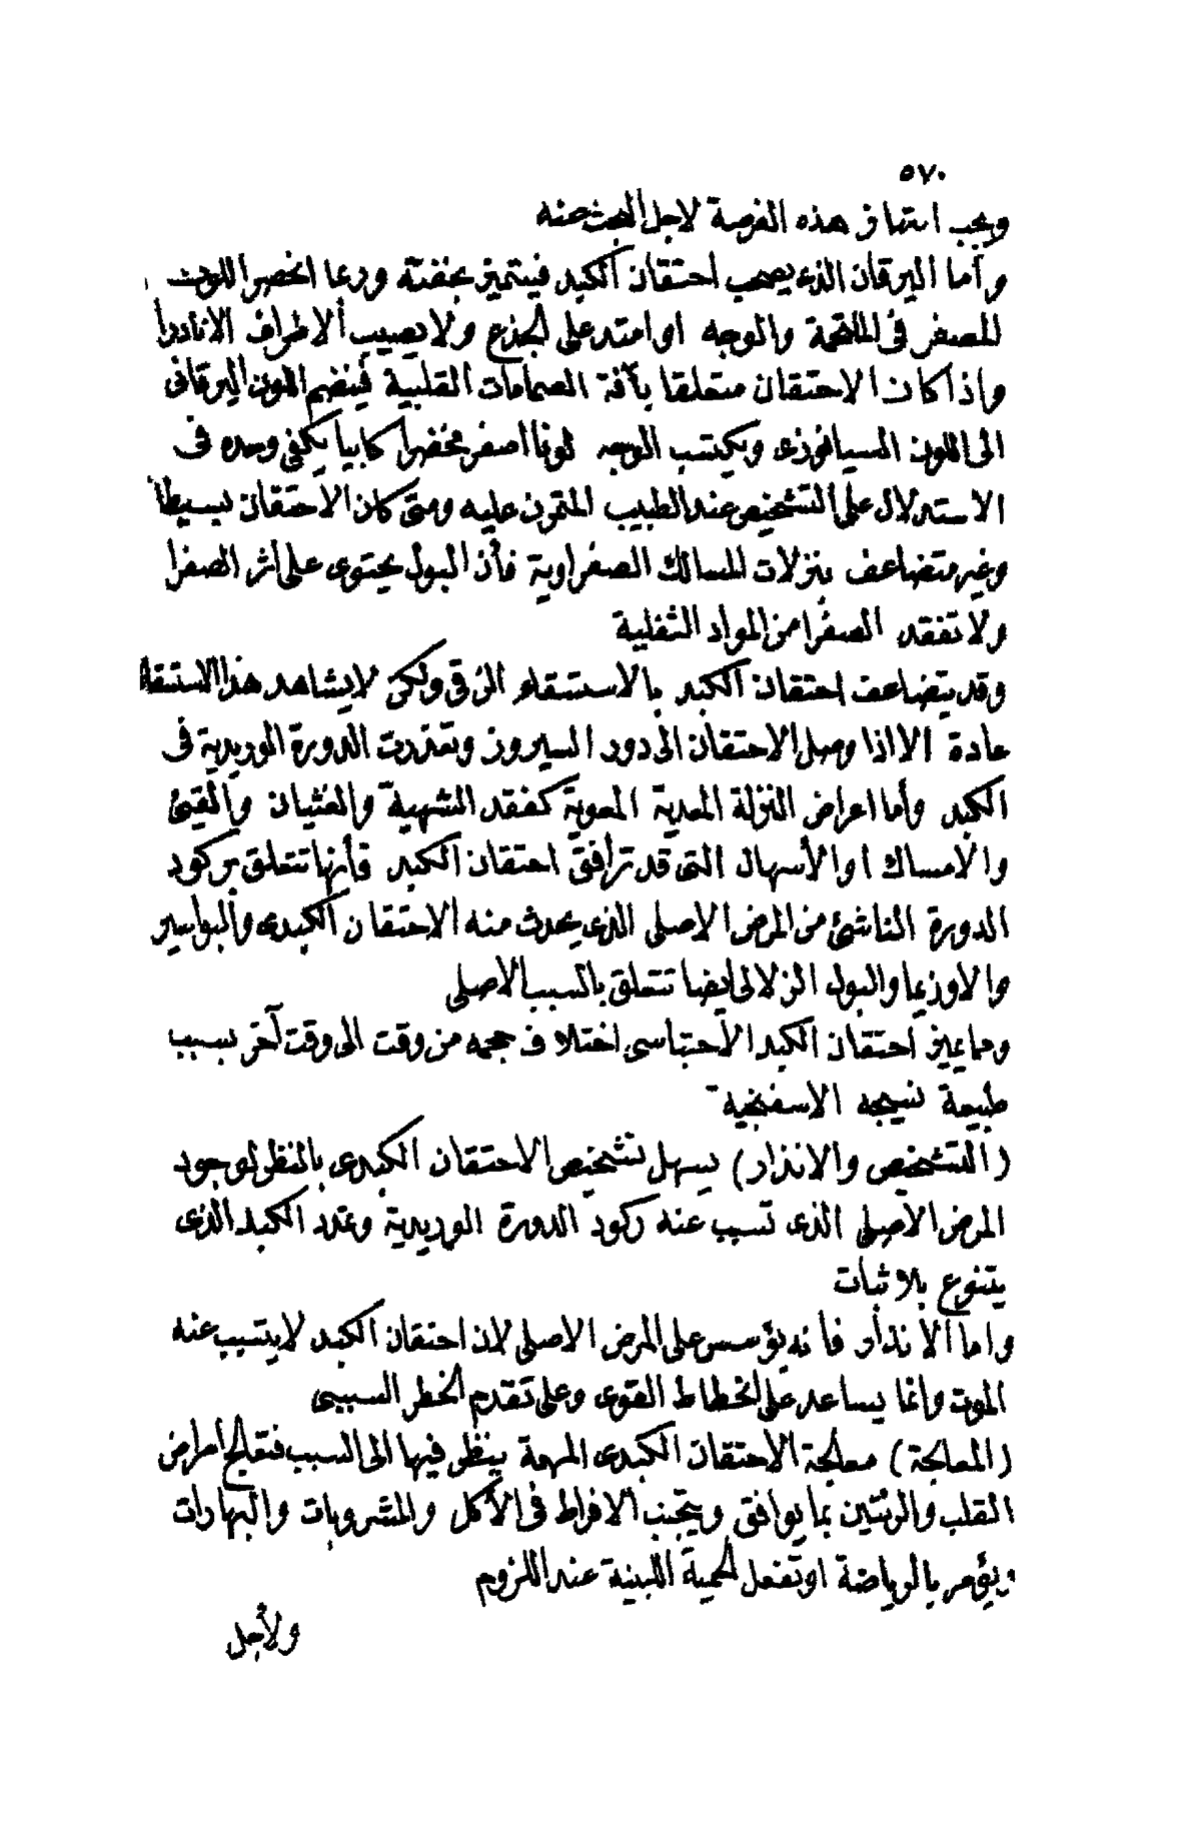 ٥٧٠
ويجب انتهاز هذه الفرصة لاجل البحث عنه
وأما اليرقان الذى يصحب احتقان الكبد فيتميز بخفته وربما انحصر اللون
المصفر فى الملتحمة والوجه او امتد على الجذع ولا يصيب ألاطراف الا نادرا
واذا كان الاحتقان متعلقا بآفة الصمامات القلبية فينضم اللون اليرقانى
الى اللون السيانوزى ويكتسب الوجه لونا اصفر مخضرا كابيا يكفى وحده فى
الاستدلال على التشخيص عند الطبيب المتمرن عليه ومتى كان الاحتقان بسيطا
وغير متضاعف بنزلات المسالك الصفراوية فأن البول يحتوى على أثر الصفرا
ولا تفقد الصفرا من المواد الثفلية
وقد يتضاعف احتقان الكبد بالاستسقاء الزقى ولكن لا يشاهد هذا الاستسقاء
عادة الا اذا وصل الاحتقان الى دور السيروز وتعذرت الدورة الوريدية فى
الكبد وأما اعراض النزلة المعدية المعوية كفقد الشهية والغثيان والقيئ
والأمساك او الأسهال التى قد ترافق احتقان الكبد فأنها تتعلق بركود
الدورة الناشئ من المرض الاصلى الذى يحدث منه الاحتقان الكبدى والبواسير
والاوزيما والبول الزلالى ايضا تتعلق بالسبب الاصلى
ومما يميز احتقان الكبد الأحتباسى اختلاف حجمه من وقت الى وقت آخر بسبب
طبيعة نسيجه الاسفنجية
(التشخيص والانذار) يسهل تشخيص الاحتقان الكبدى بالنظر لوجود
المرض الأصلى الذى تسبب عنه ركود الدورة الوريدية وتمدد الكبد الذى
يتنوع بلا ثبات
واما ألانذار فأنه يؤسس على المرض الاصلى لان احتقان الكبد لا يتسبب عنه
الموت وانما يساعد على انحطاط القوى وعلى تقدم الخطر السببى
(المعالجة) معالجة الاحتقان الكبدى المهمة ينظر فيها الى السبب فتعالج امراض
القلب والرئتين بما يوافق ويتجنب ألافراط فى الأكل والمشروبات والبهارات
ويؤمر بالرياضة او تفعل الحمية اللبنية عند اللزوم
ولأجل